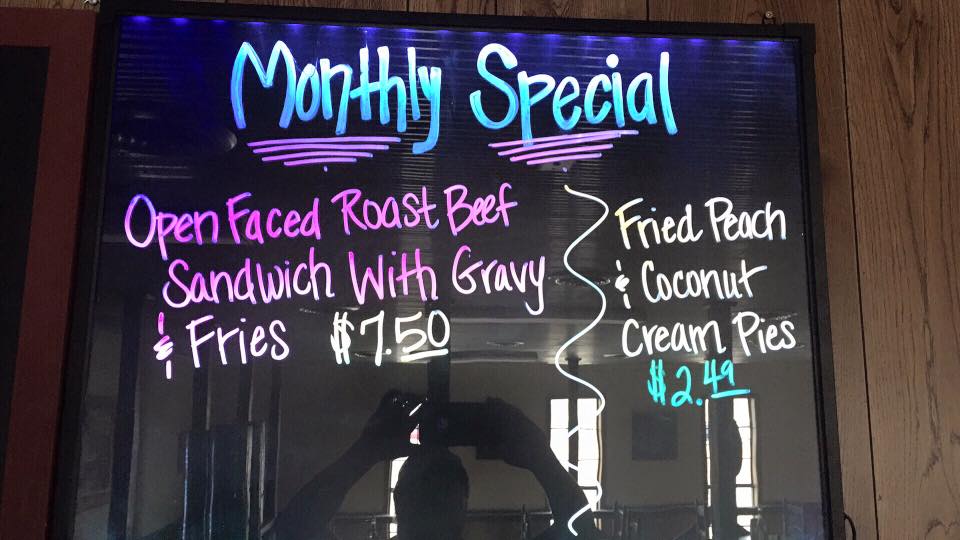 Monthly Special
Open Faced Roast Beef
Sandwich With Gravy
& Fries $7.50
Fried Peach
& Coconut
Cream Pies
$2.49